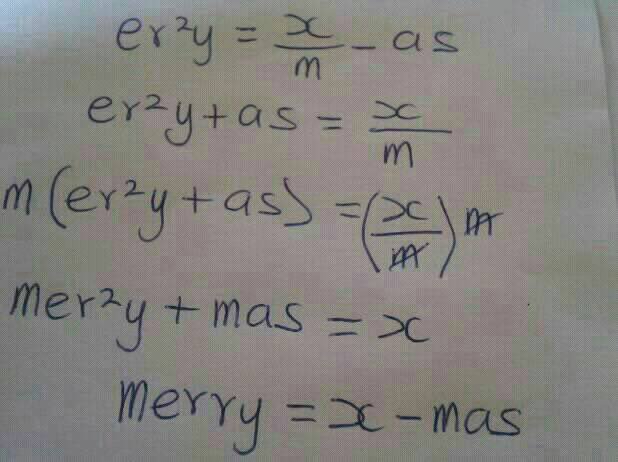 er²y = x/m - as
er²y + as = x/m
m(er²y + as) = (x/m) m
mer²y + mas = x
merry = x - mas